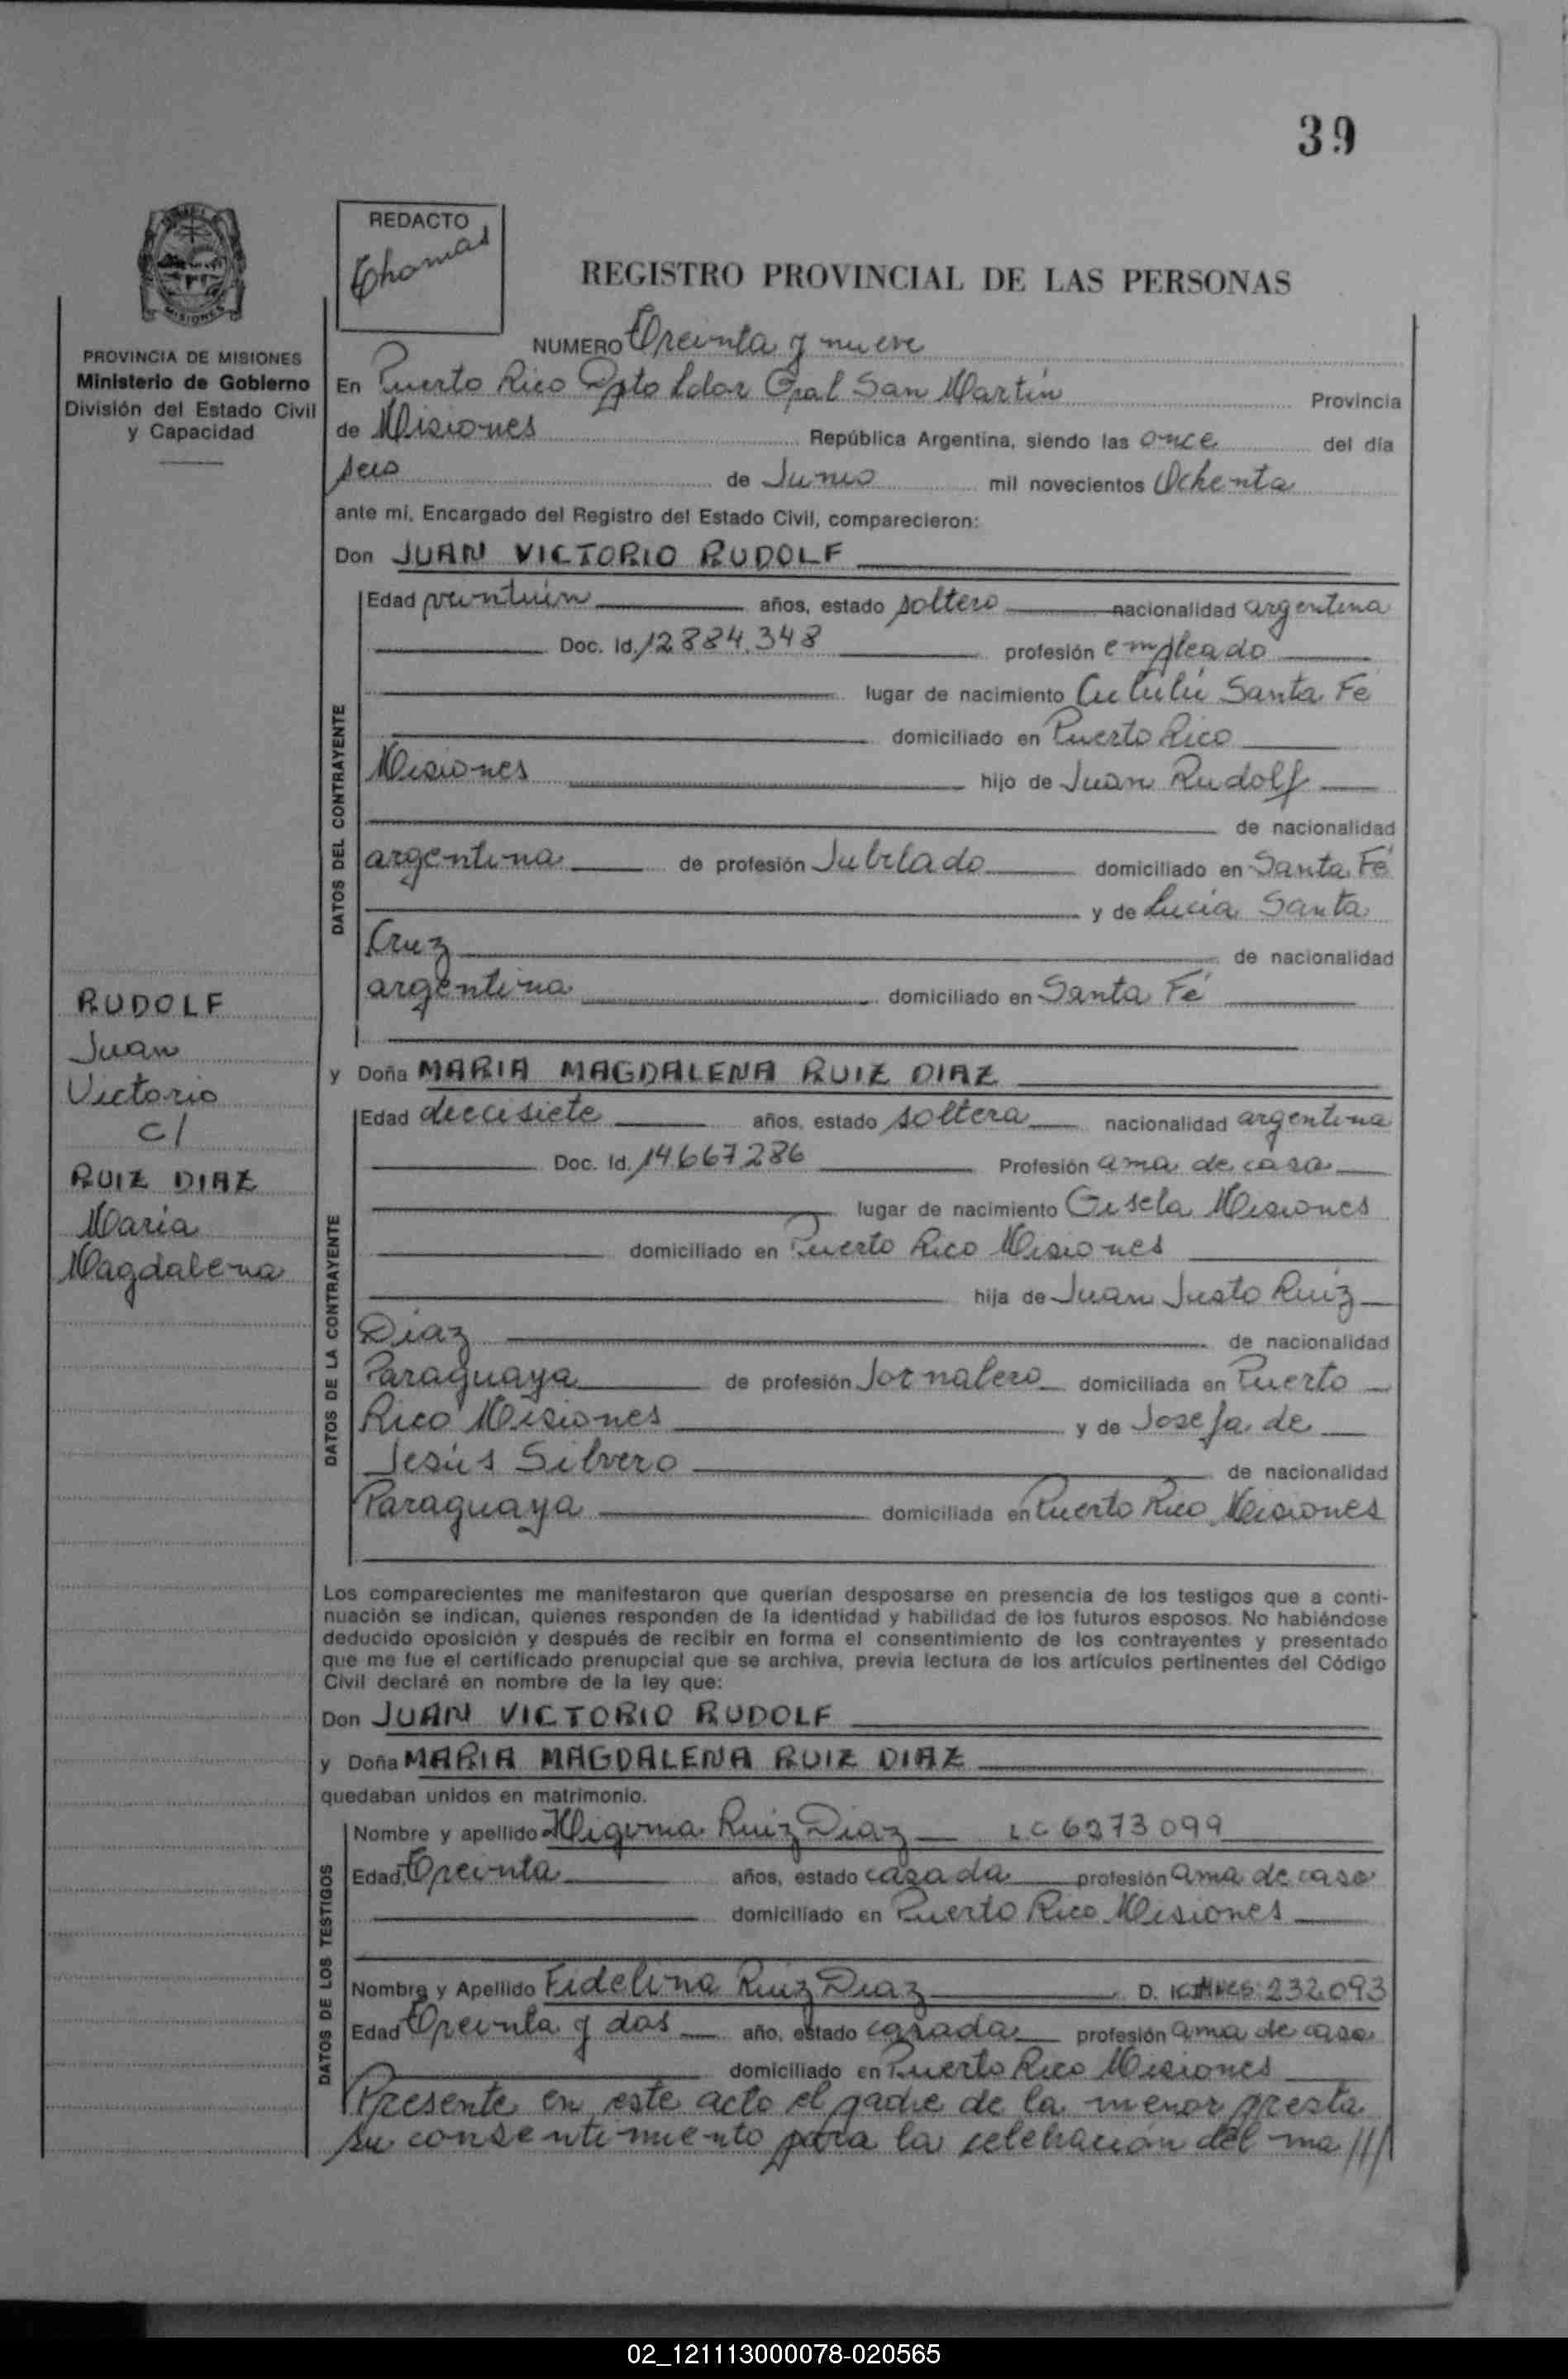 39
REDACTO
Thomas
REGISTRO PROVINCIAL DE LAS PERSONAS
PROVINCIA DE MISIONES
Ministerio de Gobierno
División del Estado Civil
y Capacidad
MISIONES
NUMERO Treinta y nueve
En Puerto Rico Dpto Ldor Gral San Martín Provincia
de Misiones República Argentina, siendo las once del día
seis de Junio mil novecientos Ochenta
ante mí, Encargado del Registro del Estado Civil, comparecieron:
Don JUAN VICTORIO RUDOLF
DATOS DEL CONTRAYENTE
Edad veintiun años, estado soltero nacionalidad argentina
Doc. Id. 12.884.348 profesión empleado
lugar de nacimiento Cululú Santa Fé
domiciliado en Puerto Rico
Misiones hijo de Juan Rudolf
de nacionalidad
argentina de profesión Jubilado domiciliado en Santa Fé
y de Lucía Santa
Cruz de nacionalidad
argentina domiciliado en Santa Fé
RUDOLF
Juan
Victorio
c/
RUIZ DIAZ
María
Magdalena
y Doña MARIA MAGDALENA RUIZ DIAZ
DATOS DE LA CONTRAYENTE
Edad diecisiete años, estado soltera nacionalidad argentina
Doc. Id. 14.667286 Profesión ama de casa
lugar de nacimiento Gisela Misiones
domiciliado en Puerto Rico Misiones
hija de Juan Justo Ruiz
Diaz de nacionalidad
Paraguaya de profesión Jornalero domiciliada en Puerto
Rico Misiones y de Josefa de
Jesús Silvero de nacionalidad
Paraguaya domiciliada en Puerto Rico Misiones
Los comparecientes me manifestaron que querían desposarse en presencia de los testigos que a conti-
nuación se indican, quienes responden de la identidad y habilidad de los futuros esposos. No habiéndose
deducido oposición y después de recibir en forma el consentimiento de los contrayentes y presentado
que me fue el certificado prenupcial que se archiva, previa lectura de los artículos pertinentes del Código
Civil declaré en nombre de la ley que:
Don JUAN VICTORIO RUDOLF
y Doña MARIA MAGDALENA RUIZ DIAZ
quedaban unidos en matrimonio.
DATOS DE LOS TESTIGOS
Nombre y apellido Higinia Ruiz Diaz LC 6273099
Edad Treinta años, estado casada profesión ama de casa
domiciliado en Puerto Rico Misiones
Nombre y Apellido Fidelina Ruiz Diaz D. 232.093
Edad Treinta y dos año, estado casada profesión ama de casa
domiciliado en Puerto Rico Misiones
Presente en este acto el padre de la menor presta
su consentimiento para la celebración del ma ///
02_121113000078-020565